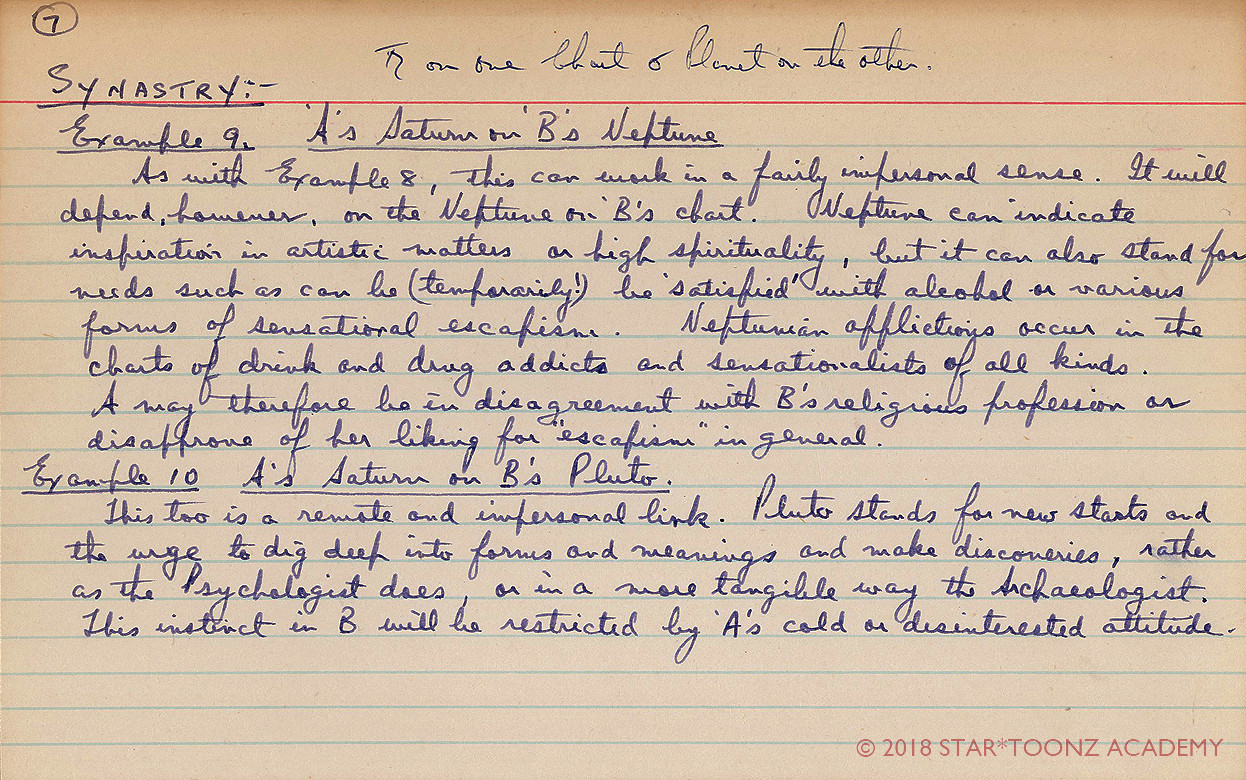 7
♄ on one Chart & Planet on the other.
SYNASTRY:-
Example 9. 'A's Saturn on 'B's Neptune
As with Example 8, this can work in a fairly impersonal sense. It will
depend, however, on the Neptune on 'B's chart. Neptune can indicate
inspiration in artistic matters or high spirituality, but it can also stand for
needs such as can be (temporarily!) be 'satisfied' with alcohol or various
forms of sensational escapism. Neptunian afflictions occur in the
charts of drink and drug addicts and sensationalists of all kinds.
A may therefore be in disagreement with B's religious profession or
disapprove of her liking for "escapism" in general.
Example 10 A's Saturn on B's Pluto.
This too is a remote and impersonal link. Pluto stands for new starts and
the urge to dig deep into forms and meanings and make discoveries, rather
as the Psychologist does, or in a more tangible way the Archaeologist.
This instinct in B will be restricted by 'A's cold or disinterested attitude.
© 2018 STAR*TOONZ ACADEMY